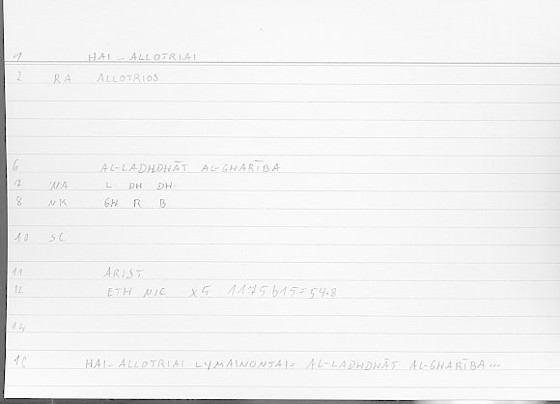 1 HAI-ALLOTRIAI
2 RA ALLOTRIOS
6 AL-LADHDHĀT AL-GHARĪBA
7 NA L DH DH
8 NK GH R B
10 SC
11 ARIST
12 ETH NIC X5 1175b15=54.8
14
18 HAI-ALLOTRIAI LYMAINONTAI= AL-LADHDHĀT AL-GHARĪBA...